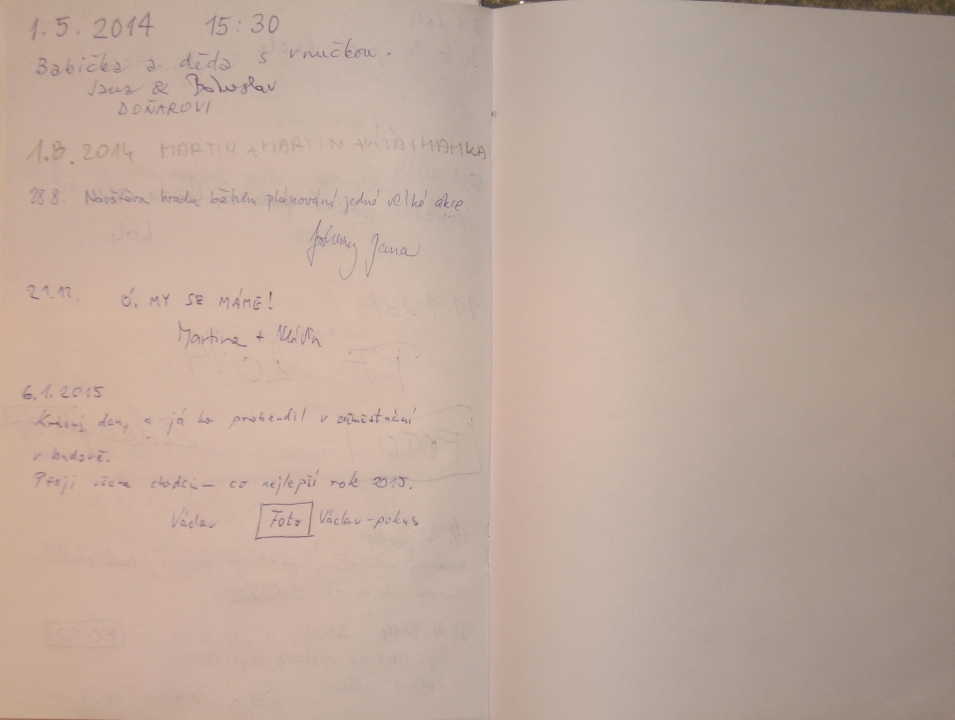 1.5.2014 15:30
Babička a děda s vnučkou.
Jana & Bohuslav
DOŇAROVI
1.8.2014 MARTIN + MARTIN + VÍTA + MAMKA
28.8. Návštěva hradu během plánování jedné velké akce
Jana
21.12. Ó, MY SE MÁME!
Martina +
6.1.2015
Krásný den, a já ho probendil v zaměstnání
v budově.
Přeji všem chodcům co nejlepší rok 2015.
Václav Foto Václav-pokus